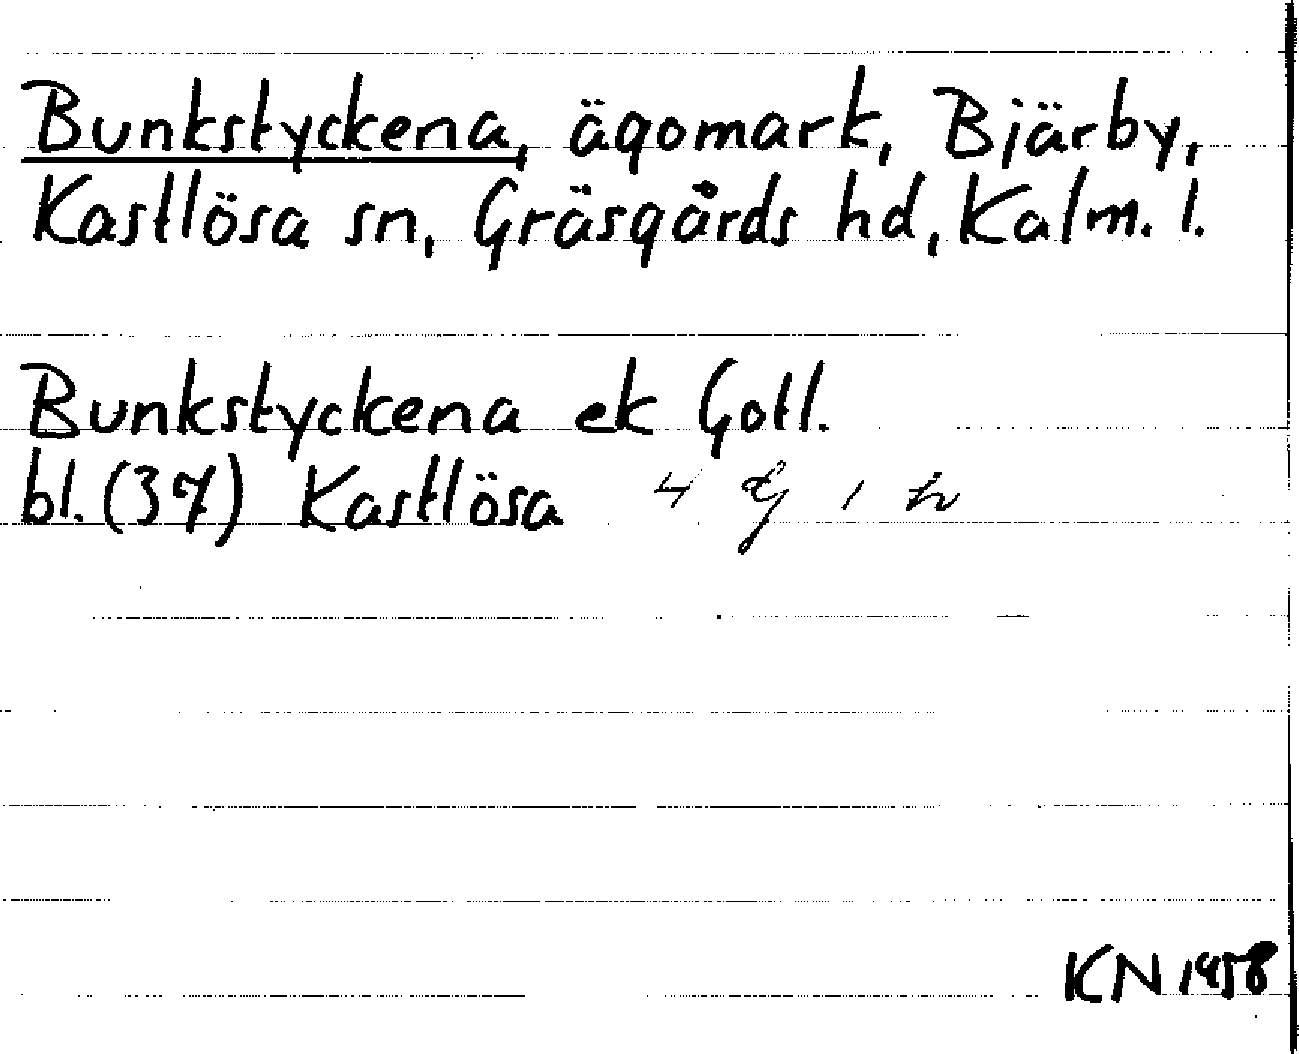 Bunkstyckena, ägomark, Bjärby,
Kastlösa sn, Gräsgårds hd, Kalm. l.
Bunkstyckena ek Gotl.
bl. (37) Kastlösa 4
KN 1958